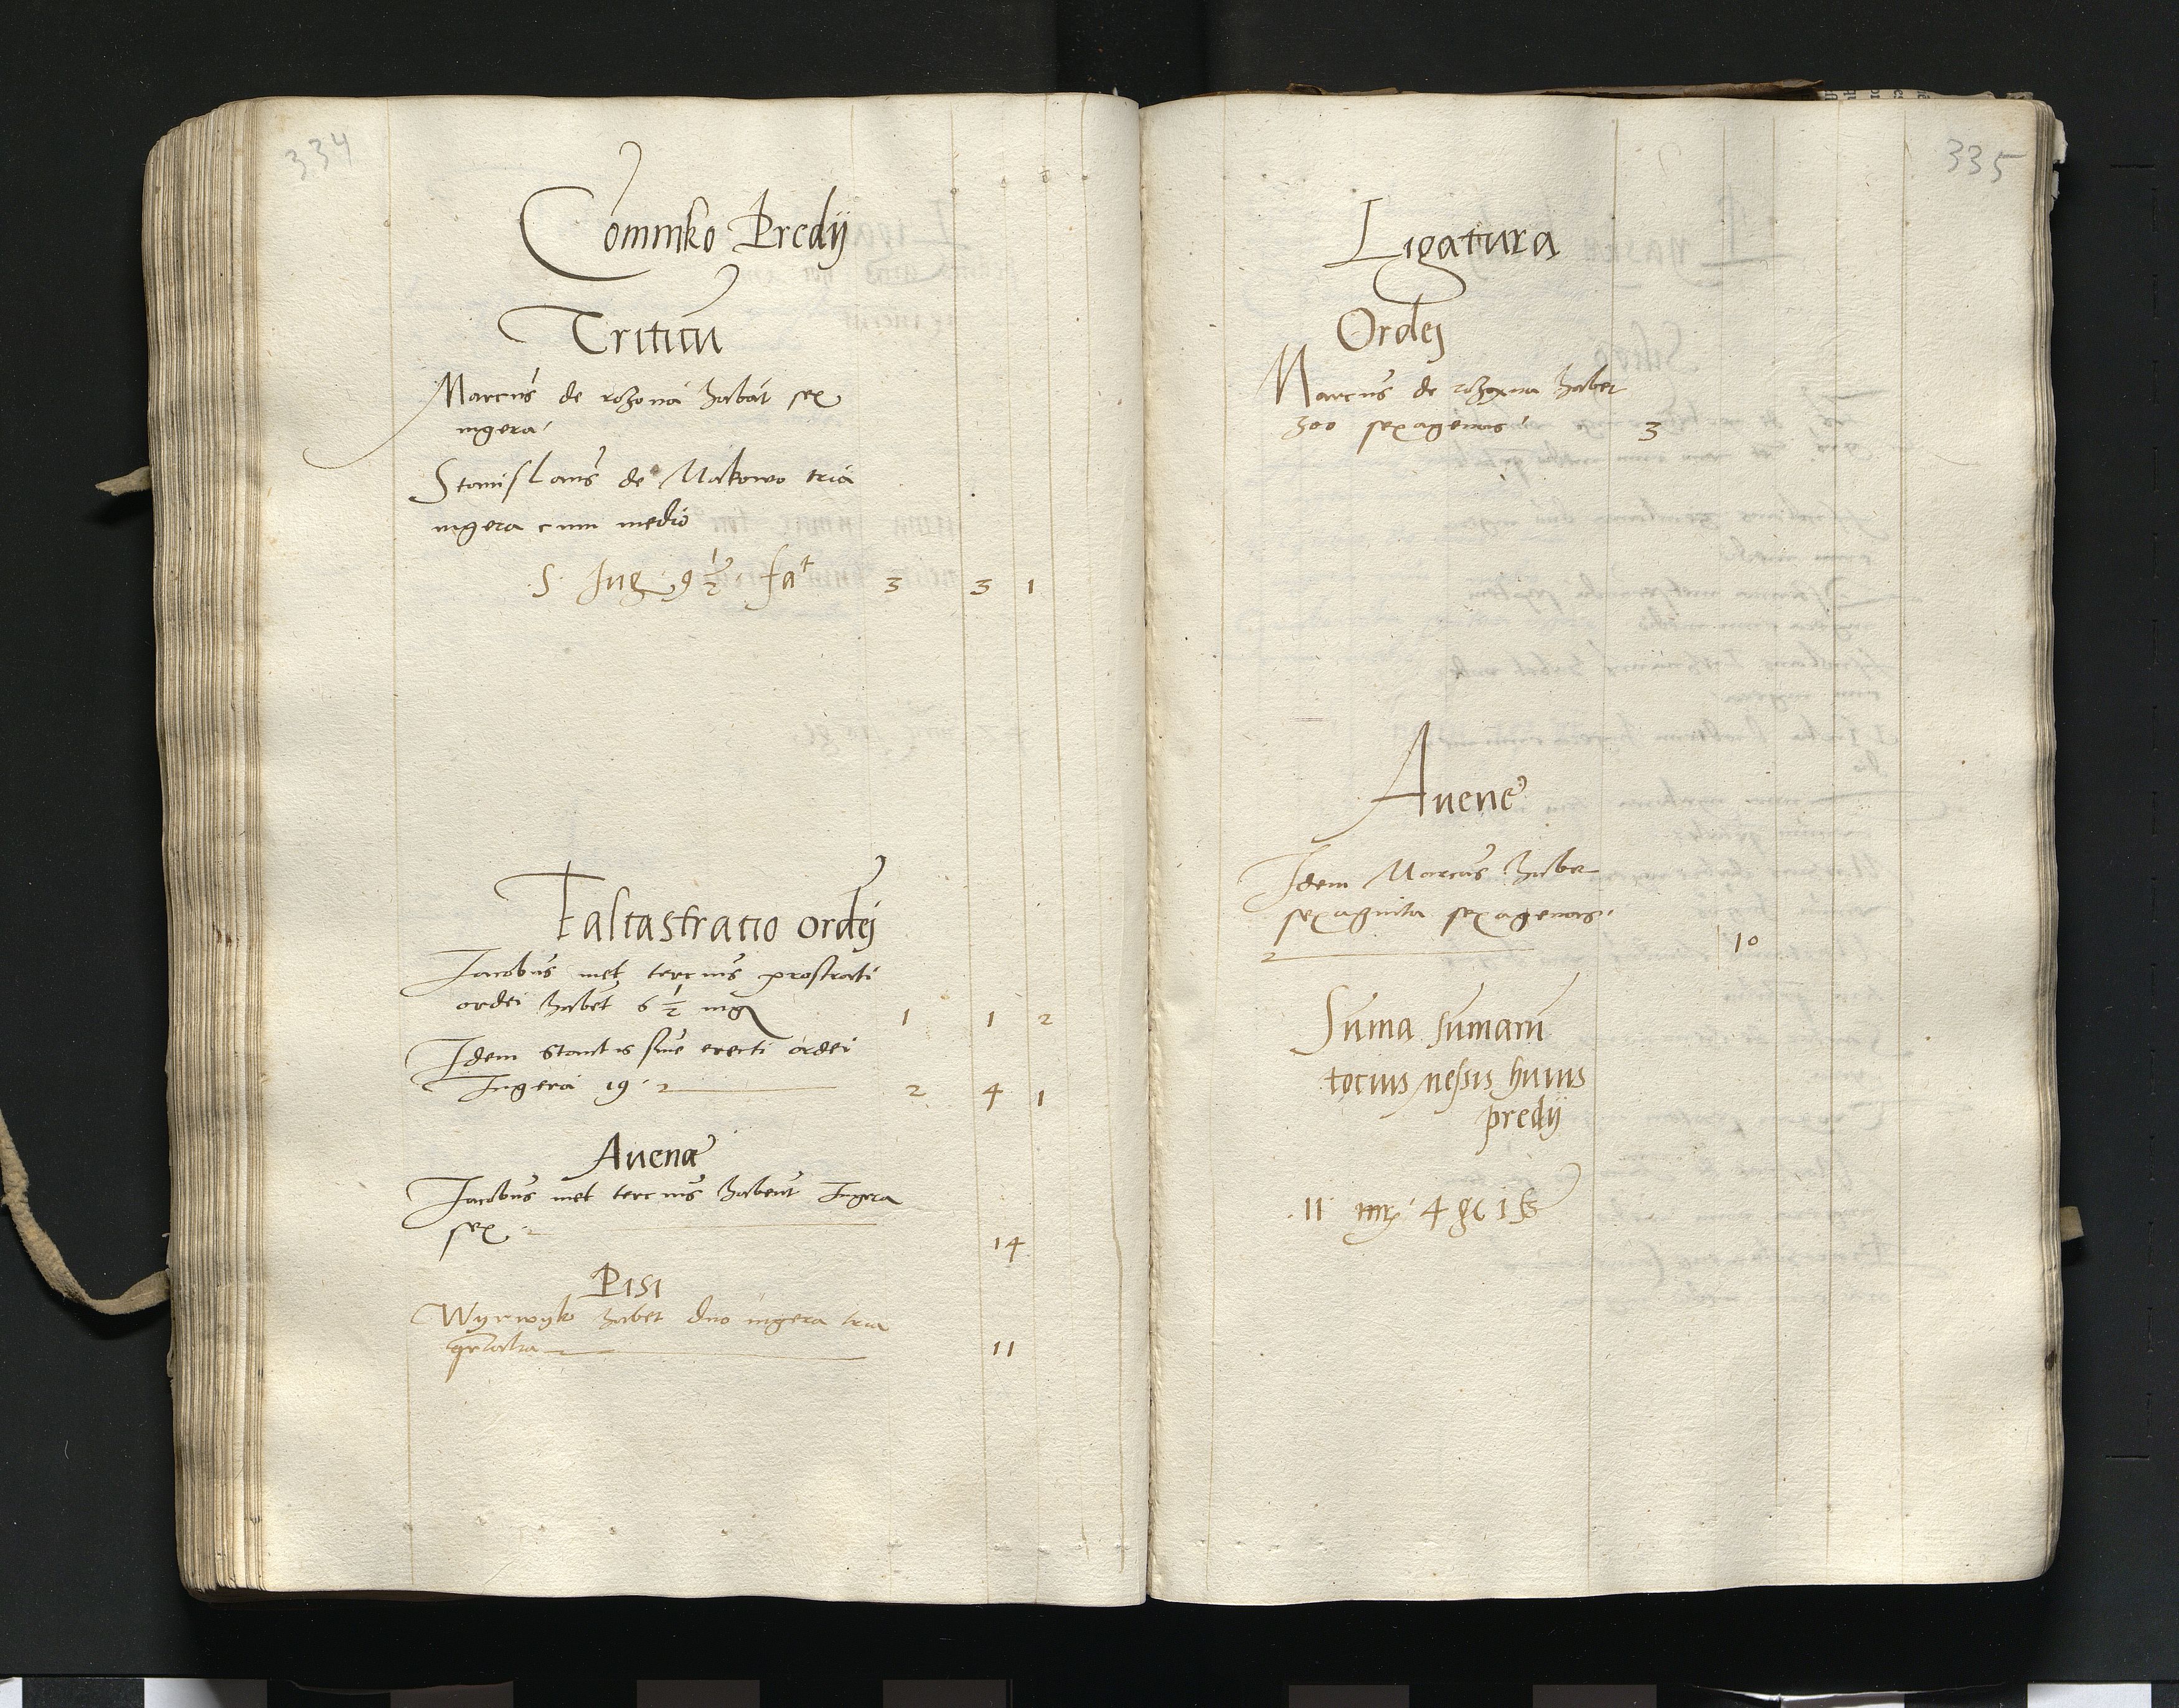 334
Tommko Predÿ
Triticu
Marcus de rozona habat sex
iugera
Stanislaus de Makowo tria
iugera cum medio
S Jug 9 1/2 fat 3 3 1
Falcastratio ordej
Jacobus met tercius prostrati
ordei habet 6 1/2 iug 1 1 2
Idem stantis sive erecti ordei
Jugera 19 2 4 1
Auenae
Jacobus met tercius habent Jugera
sex 14
Pisi
Wyrwyk habet duo iugera tria
11
335
Ligatura
Ordej
Marcus de rozona habet
300 sexagenas 3
Auene
Idem Marcus habet
sexaginta sexagenas
10
Suma sumaru
tocius messis huius
predÿ
11 mr 4 gr 1 ß